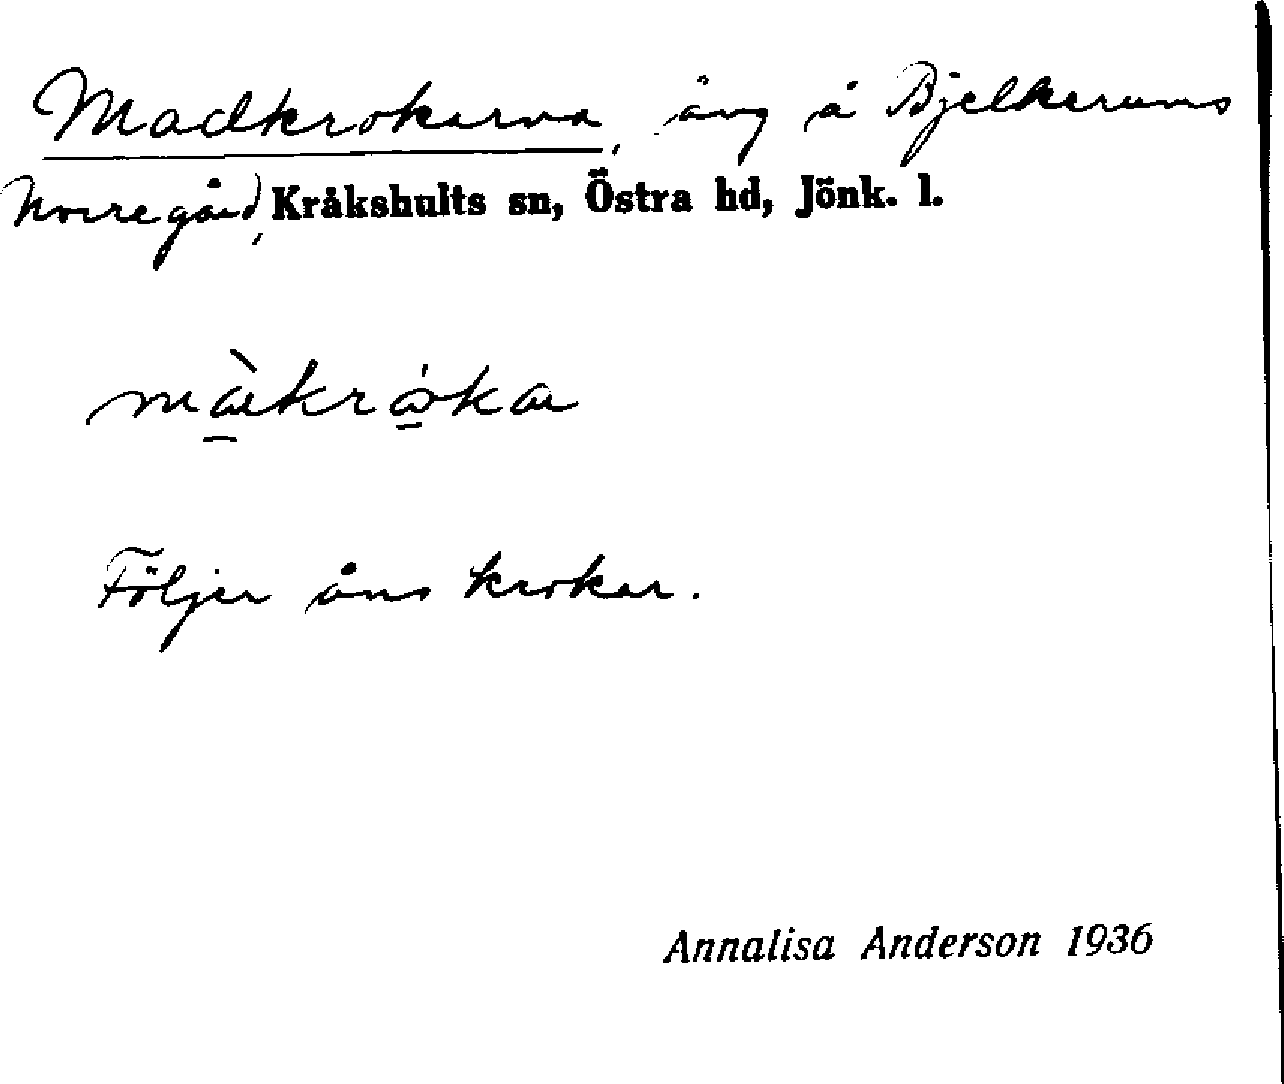 Madkrokarna, äng å Bjelkerums
Norregård, Kråkshults sn, Östra hd, Jönk. l.
màkróka
Följer åns krokar.
Annalisa Anderson 1936